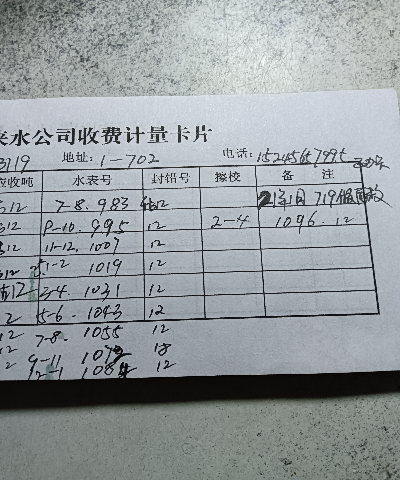 来水公司收费计量卡片
3119 地址：1-702 电话：15245657995
应收吨 水表号 封铅号 擦校 备 注
12 7-8.983 12 21年1月719
12 9-10.995 12 2-4 1096.12
12 11-12.1007 12
12 1-2 1019 12
12 3-4.1031 12
2 5-6.1043 12
12 7-8.1055 12
12 9-11 107 18
2 12-1 108 12